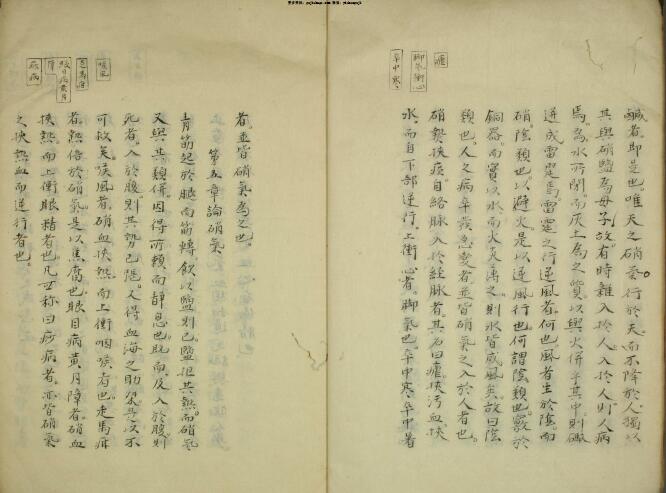 瘧
脚氣衝心
卒中寒
鹹者即是也唯天之硝氣行於天而不降於人獨以
其與硝鹽為母子故有時雜入於人入於人則人病
焉為水所閉而灰土為之質以與火併乎其中則
遂成雷霆焉雷霆之行逆風者何也風者生於陰而
硝陰類也以避火是以逆風行也何謂陰類也嘗於
銅器而實以水而火炎薄之則水皆成風矣故曰陰
類也人之病卒發急變者並皆硝氣之入於人者也
硝熱挾痰自絡脉入於經脉者其名曰瘧挾汚血挾
水而自下部逆行上衝心者脚氣也卒中寒卒中暑
喉風
走馬疳
眼目病黄月
障
痧病
者並皆硝氣為之也
第五章論硝氣
青筋起於腿而筋轉飲以鹽則已鹽拒其熱而硝氣
又與其類併因得所賴而靜息也既而及入於腹則
死者入於腹則其勢已隠又得血海之助
可救矣喉風者硝血挾熱而上衝咽喉者也走馬疳
者熱倍於硝氣是以焦腐也眼目病黄月障者硝血
挾熱而上衝眼睛者也凡世称曰痧病者亦皆硝氣
之挾熱血而逆行者也